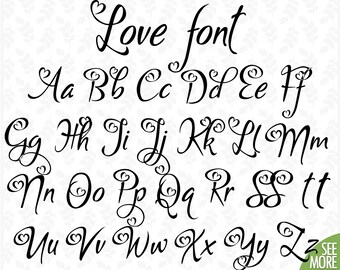 Love font
Aa Bb Cc Dd Ee Ff
Gg Hh Ii Jj Kk Ll Mm
Nn Oo Pp Qq Rr SS tt
Uu Vv Ww Xx Yy Zz
SEE
MORE